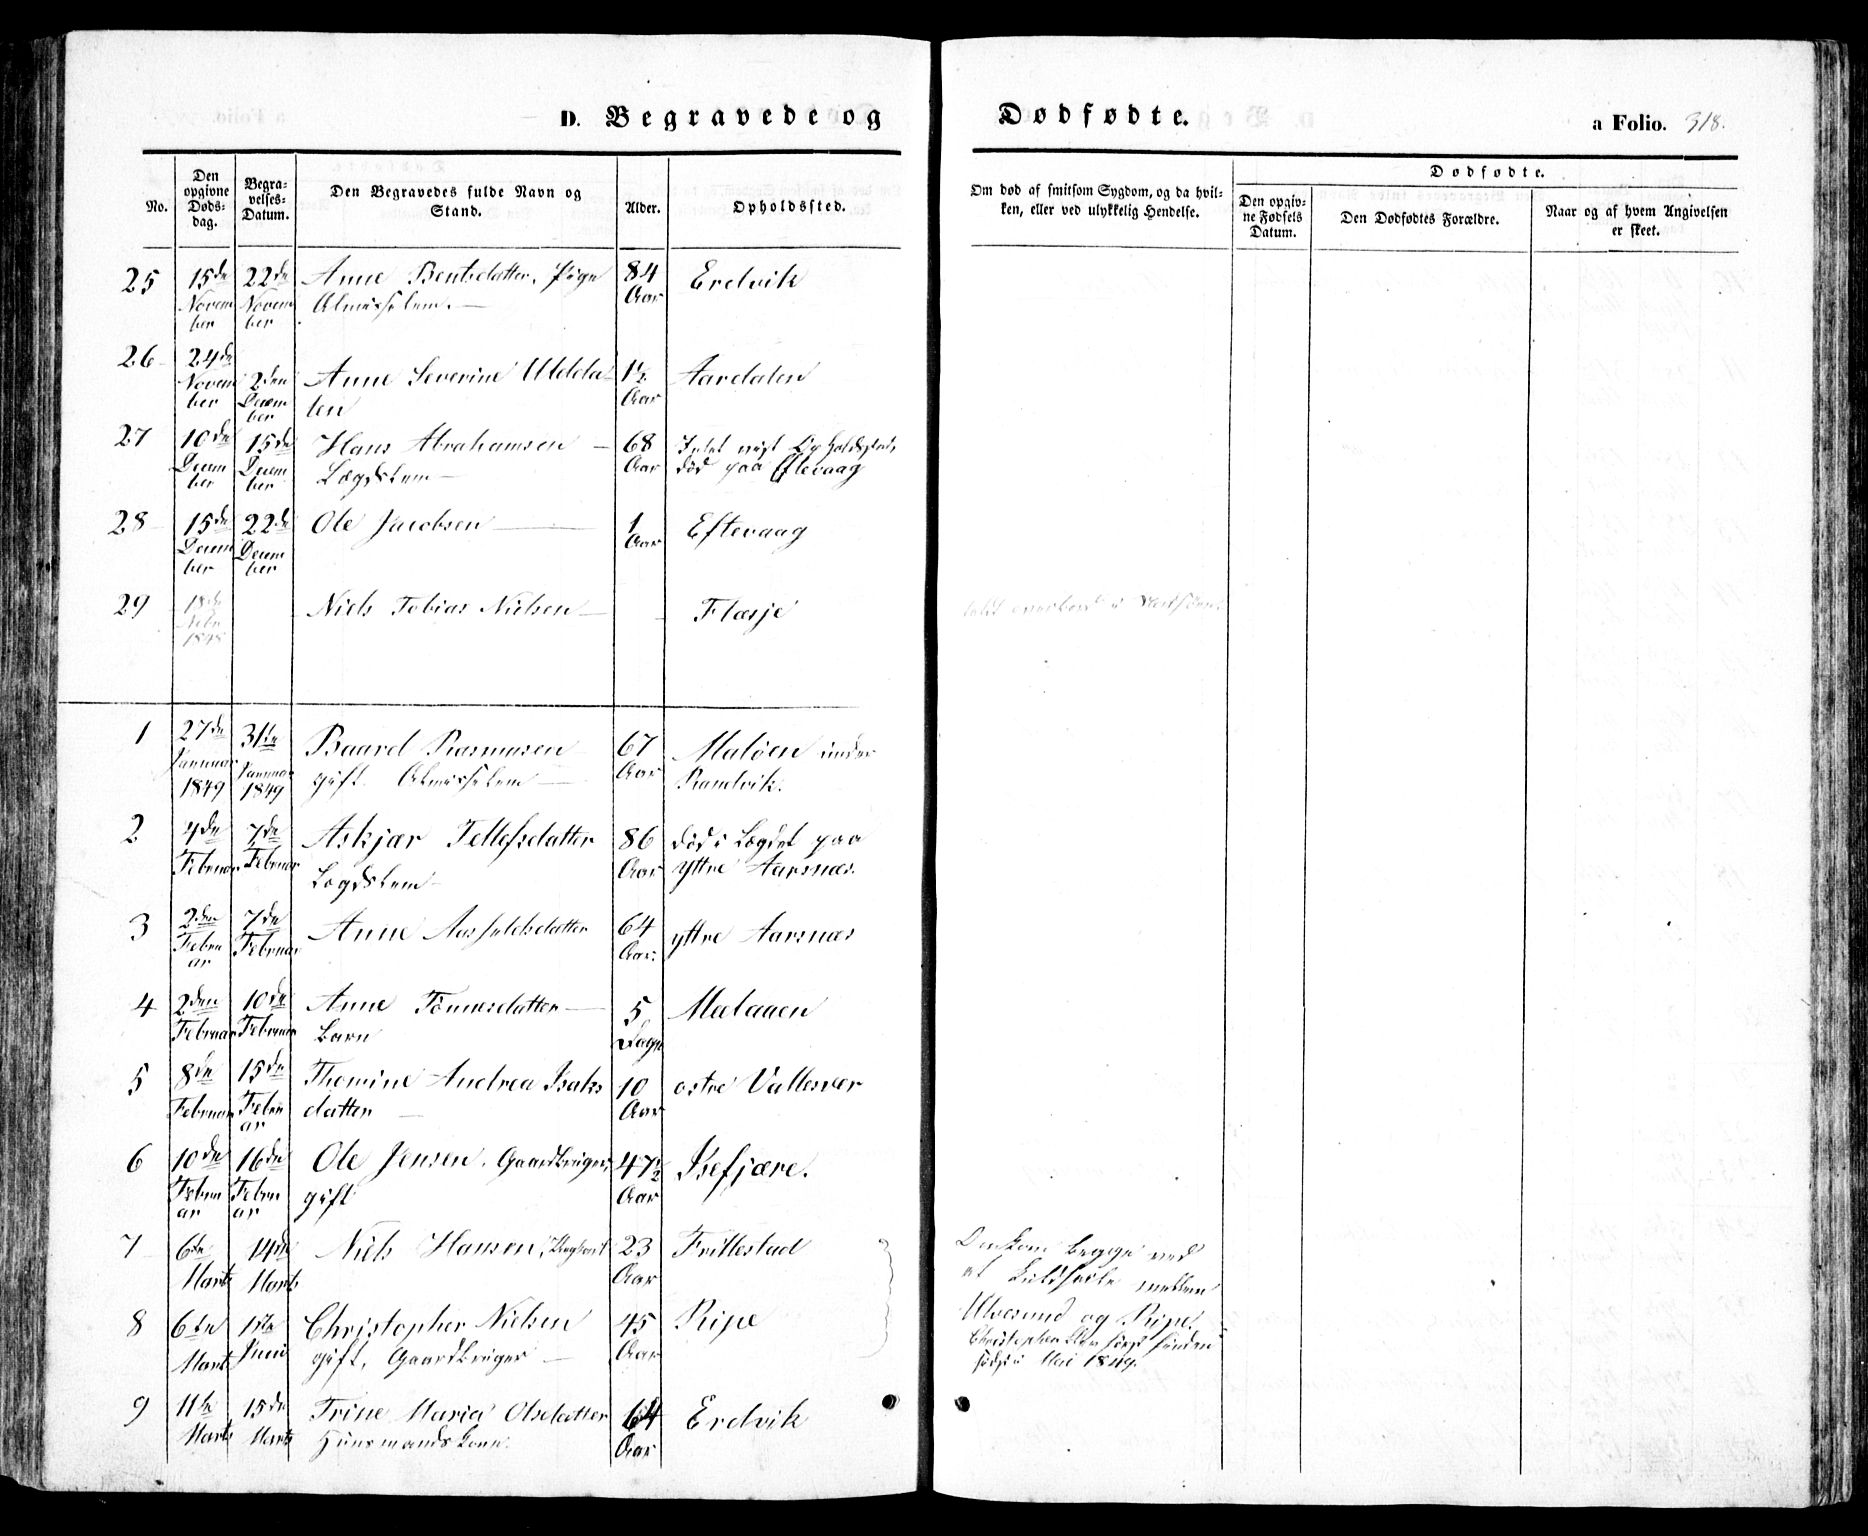 D. Begravede og Dødfødte.
a Folio. 318.
No.
Den opgivne Døds-dag.
Begra-velses-Datum.
Den Begravedes fulde Navn og Stand.
Alder.
Opholdssted.
Om død af smitsom Sygdom, og da hvil-ken, eller ved ulykkelig Hendelse.
Dødfødte.
Den opgiv-ne Fødsels Datum.
Den Dødfødtes Forældre.
Naar og af hvem Angivelsen er skeet.
25 15de November 22de November Anne Bentsdatter, Pige Almisselem. 84 Aar Eredvik
26 24de November 2den December Anne Severine Uldda-len 1½ Aar Aardalen
27 10de December 15de December Hans Abrahamsen Lægdslem 68 Aar Intet vist Opholdssted, død paa Eftevaag
28 15de December 22de December Ole Jacobsen 1 Aar Eftevaag
29 18de 1848 Niels Tobias Nielsen Flæsje
1 27de Januar 1849 31te Januar 1849 Baard Rasmusen gift. Almisselem 67 Aar Maløen under Randvik.
2 4de Februar 7de Februar Askjær Tellefsdatter Lægdslem 86 Aar død i Lægdet paa yttre Aarsnæs.
3 2den Februar 7de Februar Anne Aasuldsdatter 64 Aar. yttre Aarsnæs
4 2den Februar 10de Februar Anne Tönnesdatter Barn 5 Dage Mælaaen
5 8de Februar 15de Februar Thomine Andrea Isaks datter 10 Aar østre Vallesvær
6 10de Februar 16de Februar Ole Jensen. Gaardbruger, gift 47½ Aar Isefjære.
7 6te Marts 14de Marts Niels Hansen, Ungkarl 23 Aar Frillestad Omkom begge ved et Kuldseile mellem Ulvesund og Ripe.
8 6te Marts 1ste Juni Christopher Nielsen gift, Gaardbruger 45 Aar Ripe Christopher blev først funden sidst i Mai 1849.
9 11te Marts 15de Marts Trine Maria Olsdatter Huusmandskone. 64 Aar Eredvik